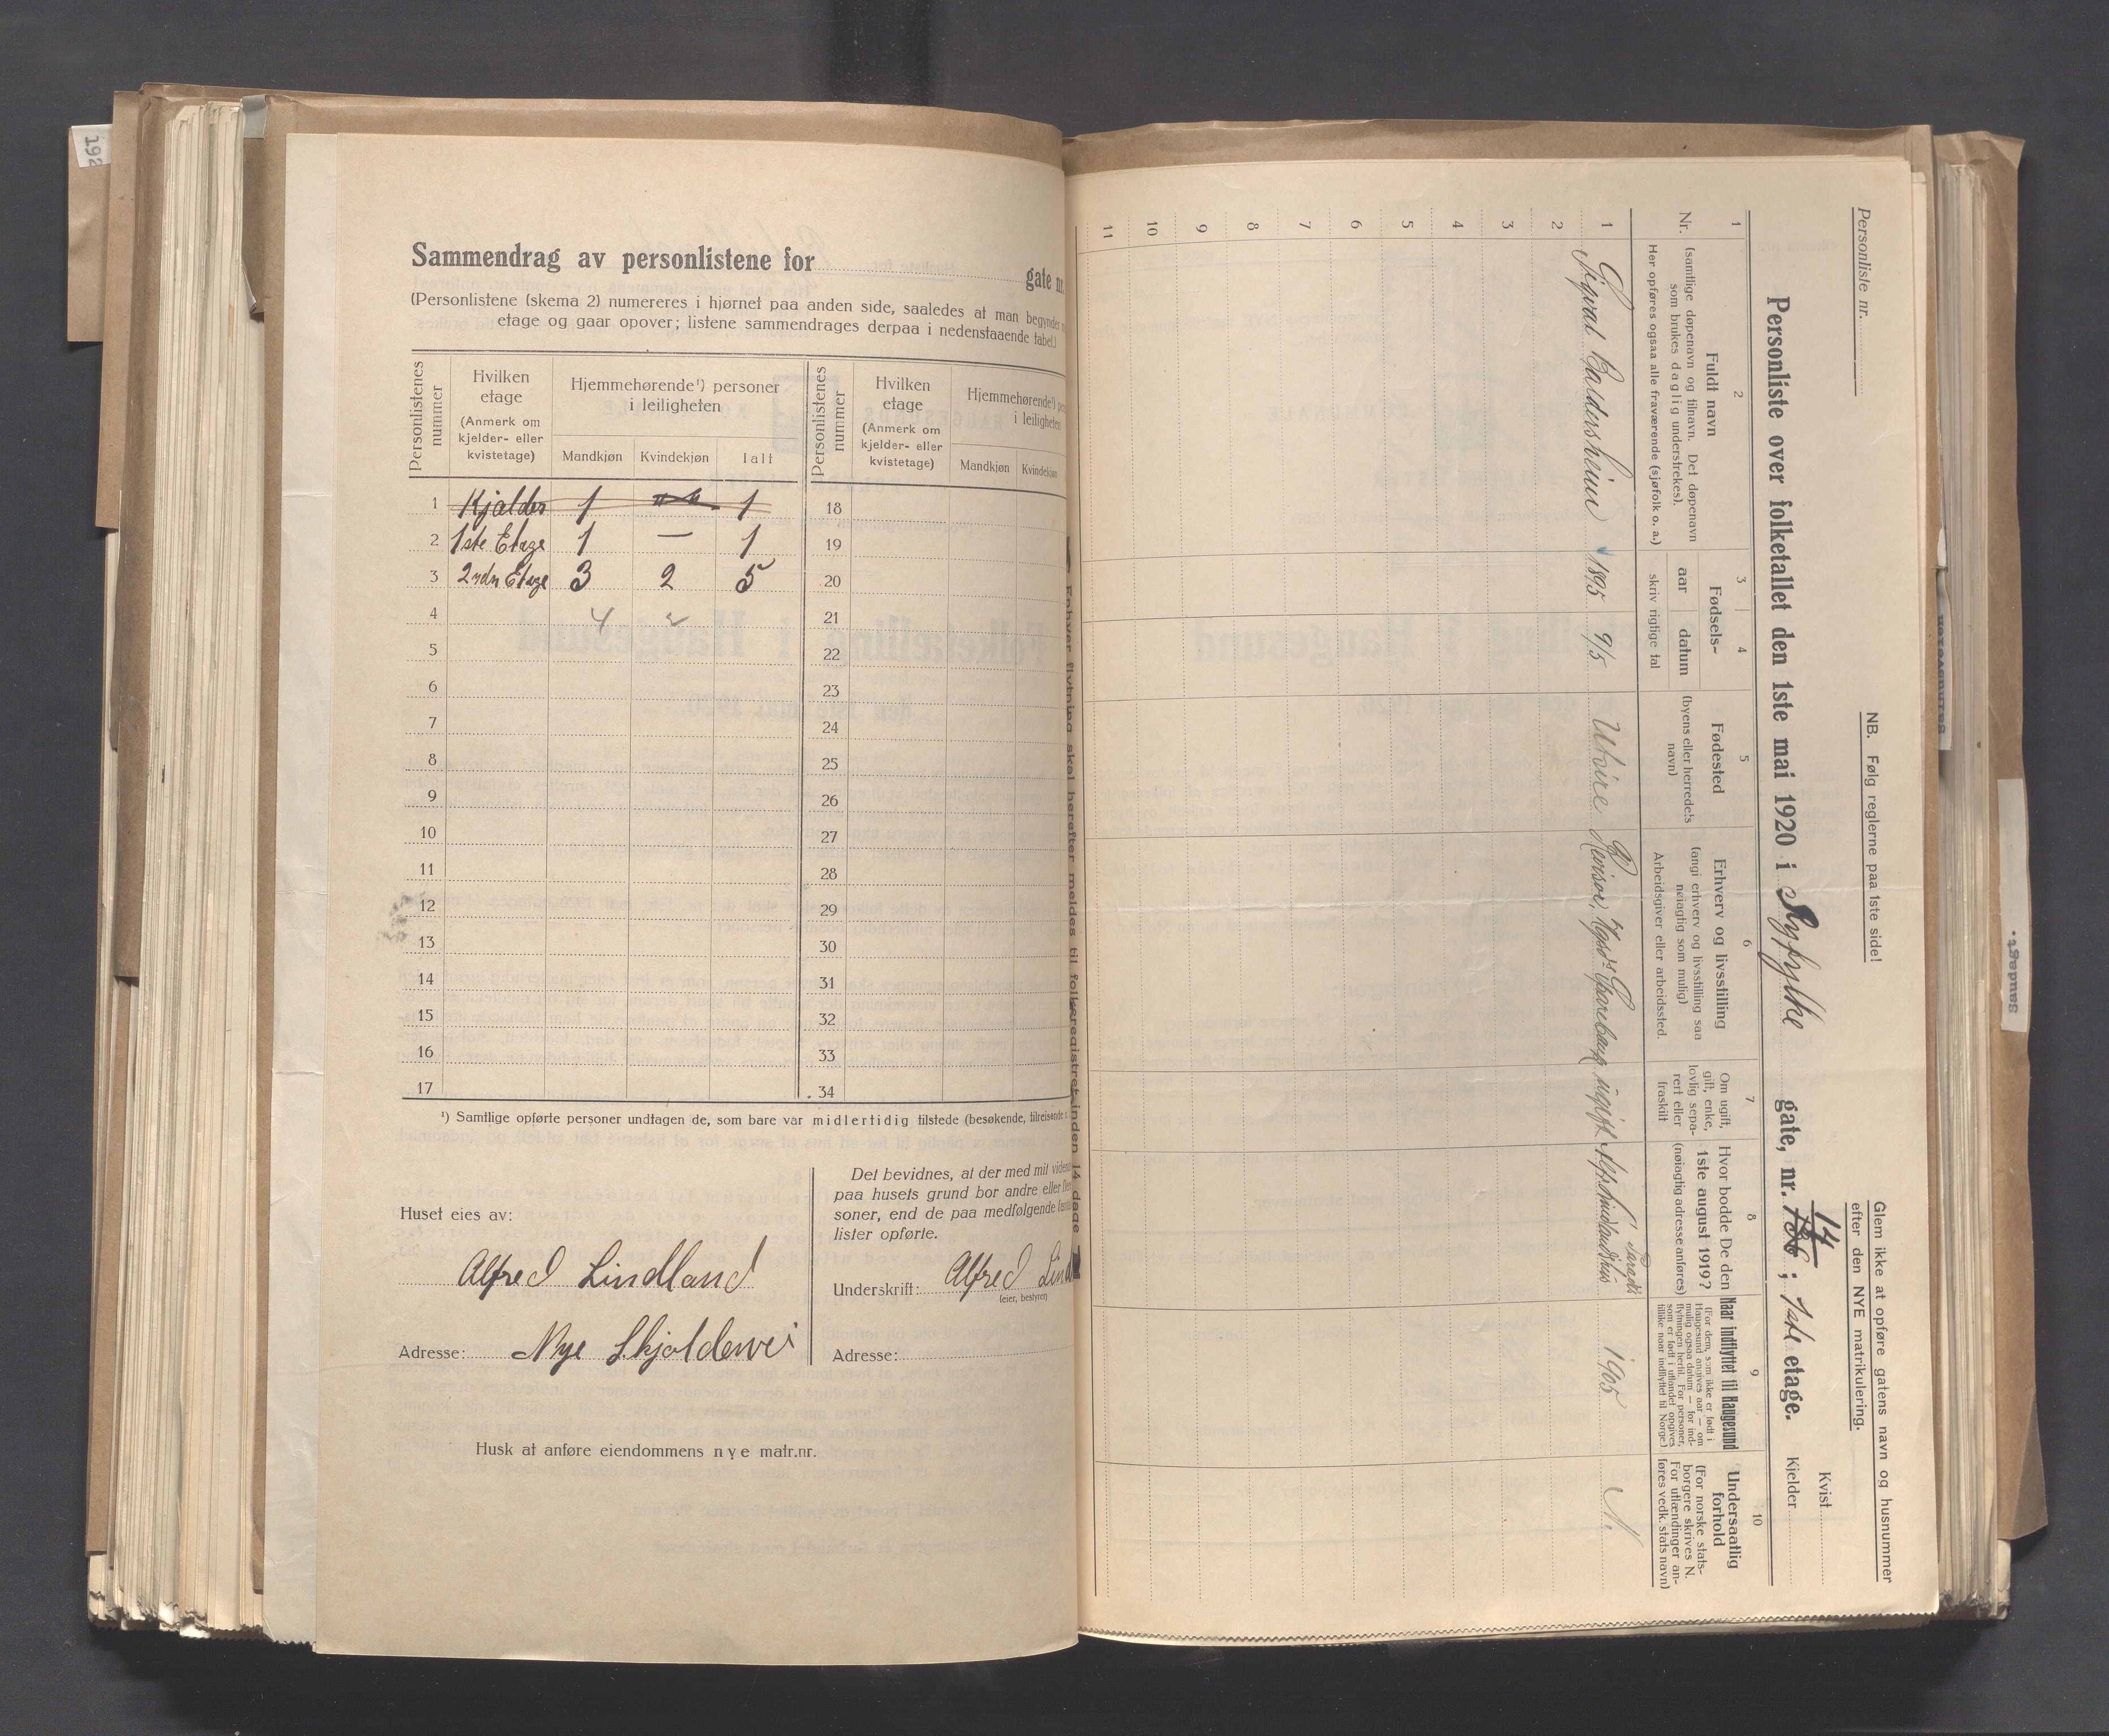 192
Sammendrag av personlistene for gate nr.
(Personlistene (skema 2) numereres i hjørnet paa anden side, saaledes at man begynder
etage og gaar opover; listene sammendrages derpaa i nedenstaaende tabel.)
Personlistenes nummer
Hvilken etage
(Anmerk om kjelder- eller kvistetage)
Hjemmehørende¹) personer i leiligheten
Mandkjøn Kvindekjøn Ialt
Personlistenes nummer
Hvilken etage
(Anmerk om kjelder- eller kvistetage)
Hjemmehørende¹) per
i leiligheten
Mandkjøn Kvindekjøn
1 Kjælder 1 1 18
2 1ste Etage 1 — 1 19
3 2nden Etage 3 2 5 20
4 4 2 21
5 22
6 23
7 24
8 25
9 26
10 27
11 28
12 29
13 30
14 31
15 32
16 33
17 34
¹) Samtlige opførte personer undtagen de, som bare var midlertidig tilstede (besøkende, tilreisende
Huset eies av:
Alfred Lindland
Adresse: Nye Skjoldevei
Det bevidnes, at der med mit viden
paa husets grund bor andre eller fler
soner, end de paa medfølgende
lister opførte.
Underskrift: Alfred Lind
(eier, bestyrer)
Adresse:
Husk at anføre eiendommens nye matr.nr.
Enhver flytning skal herefter meldes til folkeregistret inden 14 dage
Personliste nr.
NB. Følg reglerne paa 1ste side!
Glem ikke at opføre gatens navn og husnummer
efter den NYE matrikulering.
Personliste over folketallet den 1ste mai 1920 i Ryfylke gate, nr. 14; 1ste etage.
Kvist
Kjelder
1 2 3 4 5 6 7 8 9 10
Nr.
Fuldt navn
(samtlige døpenavn og tilnavn. Det døpenavn
som brukes daglig understrekes).
Her opføres ogsaa alle fraværende (sjøfolk o. a.)
Fødsels-
aar datum
skriv rigtige tal
Fødested
(byens eller herredets
navn)
Erhverv og livsstilling
(angi erhverv og livsstilling saa
nøiagtig som mulig)
Arbeidsgiver eller arbeidssted.
Om ugift,
gift, enke,
lovlig sepa-
rert eller
fraskilt
Hvor bodde De den
1ste august 1919?
(nøiagtig adresse anføres)
Naar indflyttet til Haugesund
(For dem, som ikke er født i
Haugesund angives aar — om
mulig ogsaa datum — for ind-
flytningen hertil. For personer,
som er født i utlandet opgives
tillike naar indflyttet til Norge)
Undersaatlig
forhold
(For norske stats-
borgere skrives N.
For utlændinger an-
føres vedk. stats navn)
1 Sigval Baldersheim 1895 9/5 Utsire Revisor, Hgsds Sparebank ugift Alf. Lindlands hus Paradis 1905 N.
2
3
4
5
6
7
8
9
10
11